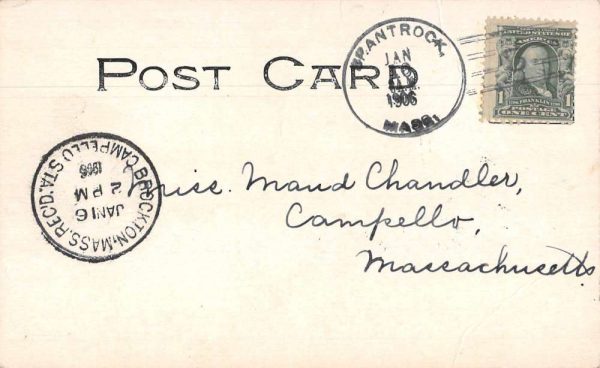 POST CARD
BRANTROCK,
JAN
1906
MASS.
UNITED STATES OF
AMERICA
FRANKLIN
1 POSTAGE 1
ONE CENT
BROCKTON, MASS. REC'D.
CAMPELLO STA.
JAN 16
2 PM
1906
Miss. Maud Chandler,
Campello,
Massachusetts